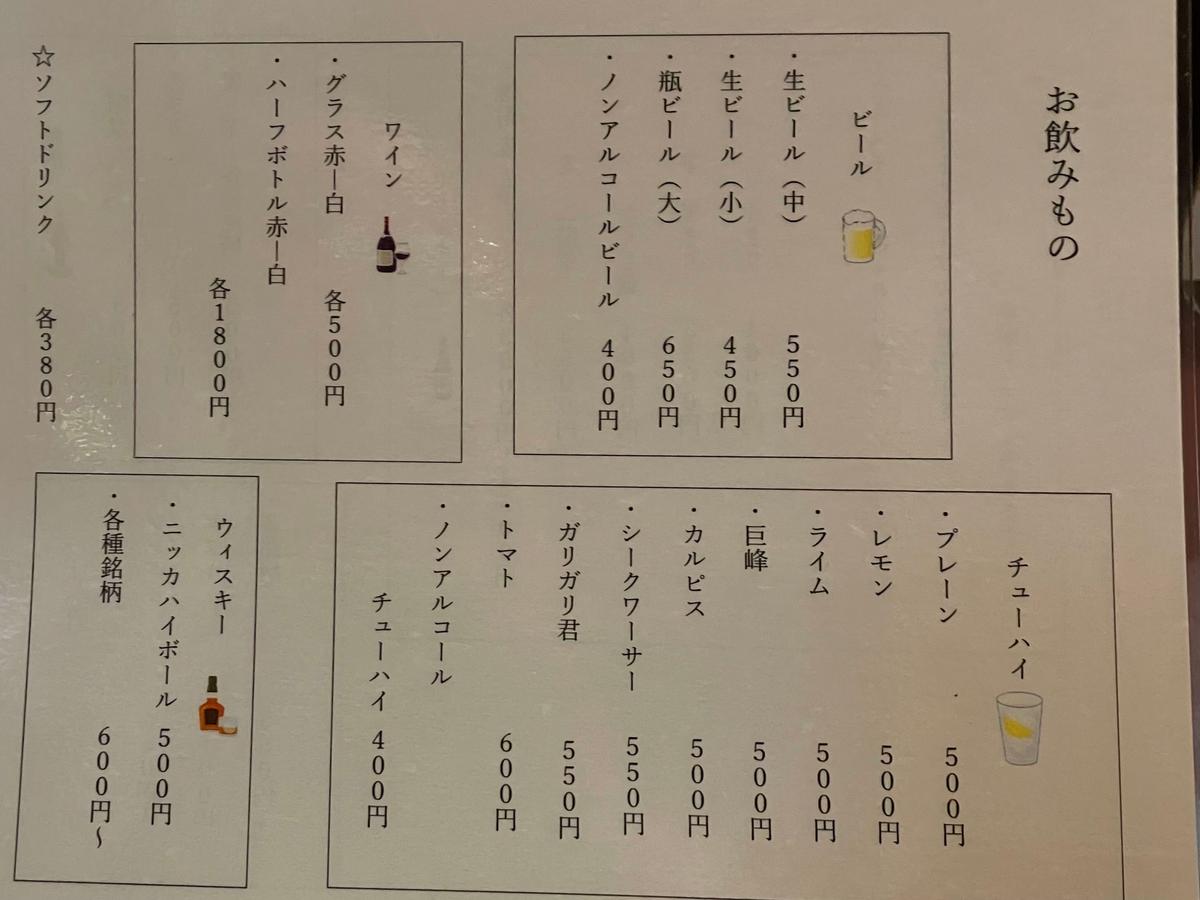 お飲みもの
ビール
・生ビール（中） 550円
・生ビール（小） 450円
・瓶ビール（大） 650円
・ノンアルコールビール 400円
ワイン
・グラス赤ー白 各500円
・ハーフボトル赤ー白
各1800円
☆ソフトドリンク 各380円
チューハイ
・プレーン 500円
・レモン 500円
・ライム 500円
・巨峰 500円
・カルピス 500円
・シークワーサー 550円
・ガリガリ君 550円
・トマト 600円
・ノンアルコール
チューハイ 400円
ウィスキー
・ニッカハイボール 500円
・各種銘柄 600円〜